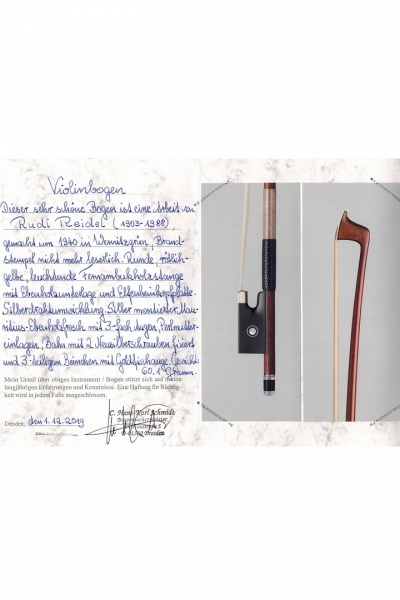 Violinbogen
Dieser sehr schöne Bogen ist eine Arbeit von
Rudi Reidel (1903-1988)
gemacht um 1940 in Wernitzgrün, Brand-
stempel nicht mehr leserlich. Runde, rötlich-
gelbe, leuchtende Fernambukholzstange
mit Ebenholzunterlage und Elfenbeinkopfplatte.
Silberdrahtumwicklung. Silber montierter Mau-
ritius-Ebenholzfrosch mit 3-fach Augen, Perlmutter-
einlagen, Bahn mit 2 Neusilberschrauben fixiert
und 3-teiligem Beinchen mit Goldfischauge Gewicht:
60,1 Gramm.
Mein Urteil über obiges Instrument / Bogen stützt sich auf meine
langjährigen Erfahrungen und Kenntnisse. Eine Haftung für Richtig-
keit wird in jedem Falle ausgeschlossen.
Dresden, den 1.12.2019
C. Hans-Karl Schmidt
Dresden